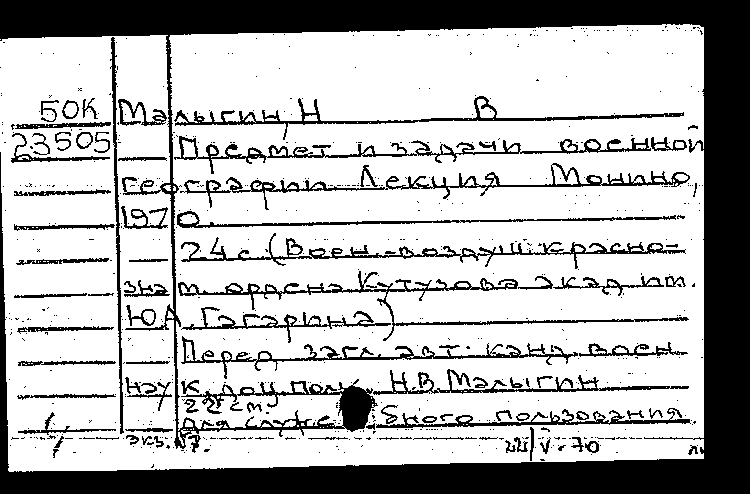 50К Малыгин, Н В
23505 Предмет и задачи военной
географии Лекция Монино,
1970.
24 с (Воен.-воздуш. красно-
знам. ордена Кутузова акад им.
Ю.А. Гагарина)
Перед загл. авт. канд. воен
наук, доц. полк. Н.В. Малыгин
22 см.
Для служебного пользования
экз. №7. 22/V-70